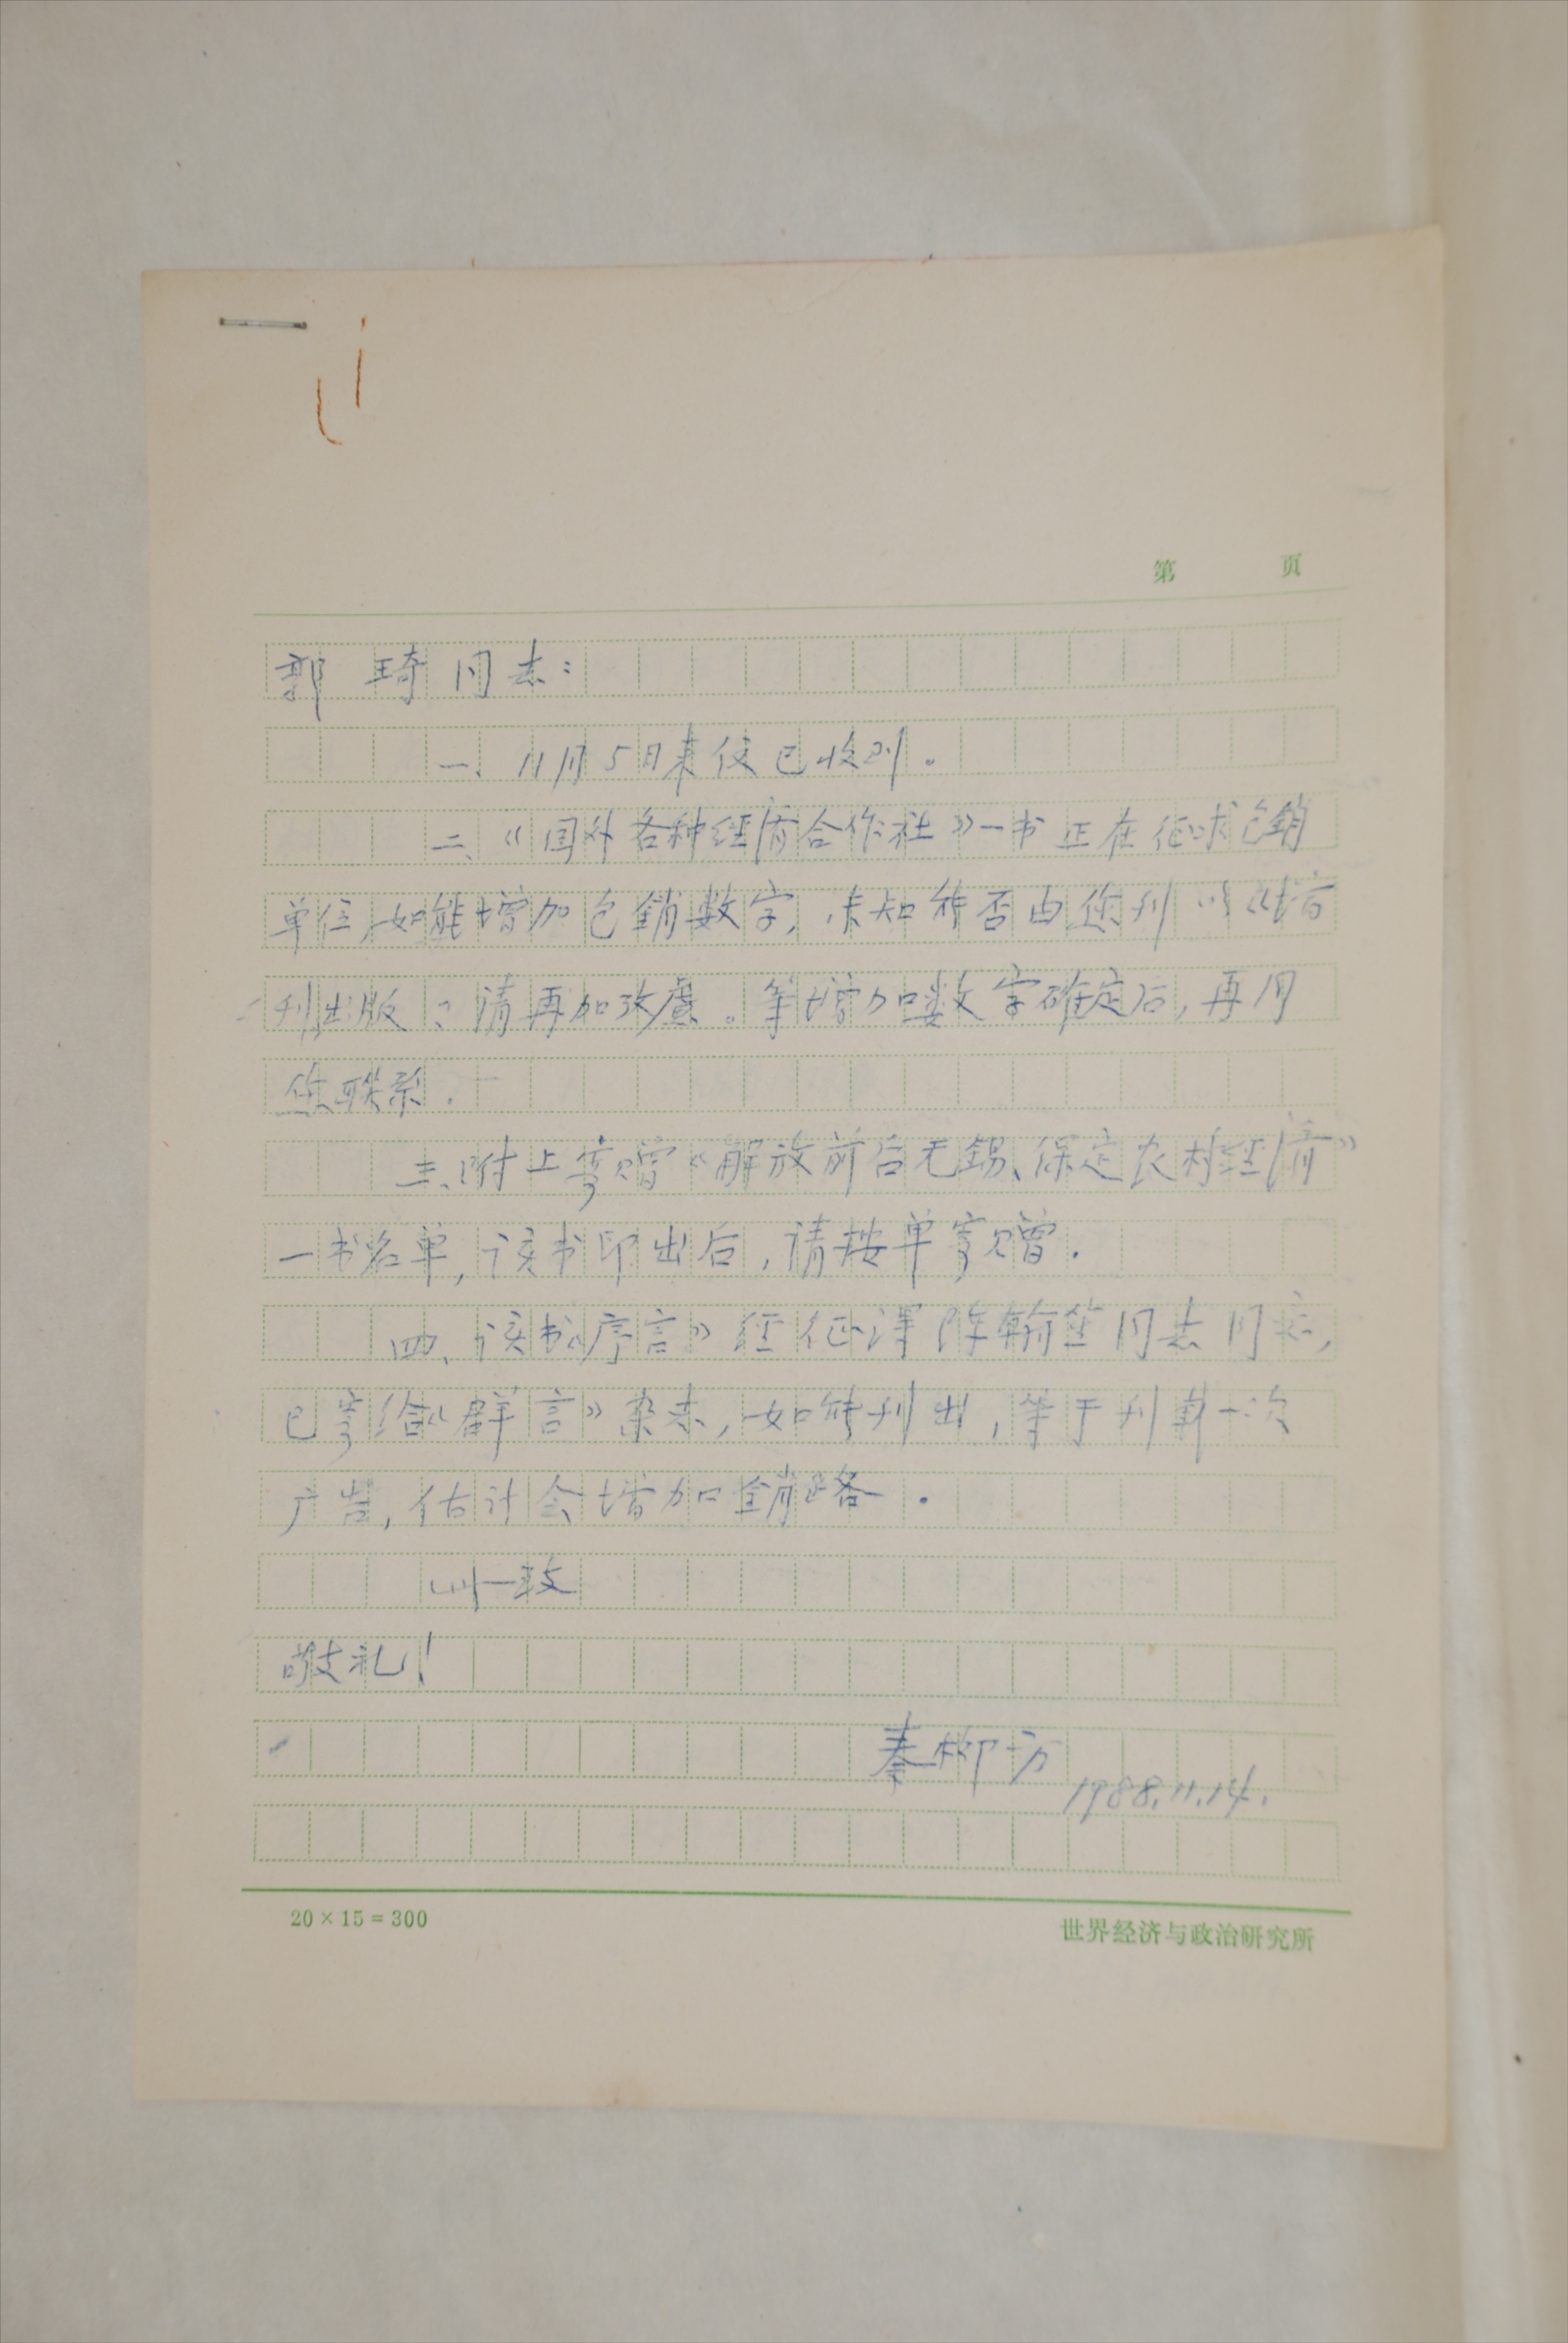 第 页
郭 琦同志:
一、11月5日来信已收到。
二、《国外各种经济合作社》一书正在征求包销
单位,如能增加包销数字,未知能否由您刊以《增
刊出版?请再加攷虑。等增加数字确定后,再同
您联系.
三、附上寄赠《解放前后无锡、保定农村经济》
一书名单,该书印出后,请按单寄赠.
四、该书《序言》经征得陈翰笙同志同意,
已寄给《群言》杂志,如能刊出,等于刊载一次
广告,估计会增加销路.
此致
敬礼!
秦柳方
1988.11.14.
20×15=300
世界经济与政治研究所